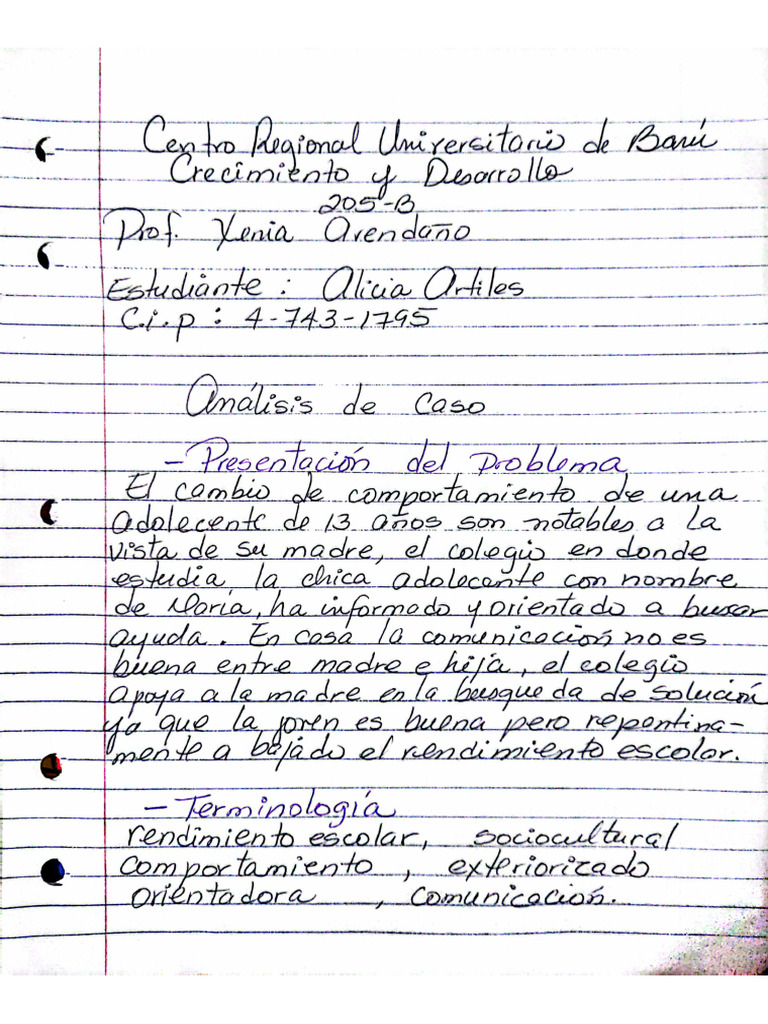 Centro Regional Universitario de Barú
Crecimiento y Desarrollo
205-B
Prof. Xenia Arendaño
Estudiante : Alicia Artiles
C.i.p : 4-743-1795
Análisis de caso
- Presentación del problema
El cambio de comportamiento de una
adolecente de 13 años son notables a la
vista de su madre, el colegio en donde
estudia, la chica adolecante con nombre
de María, ha informado y orientado a buscar
ayuda. En casa la comunicación no es
buena entre madre e hija, el colegio
apoya a la madre en la busqueda de solución
ya que la joven es buena pero repentina-
mente a bajado el rendimiento escolar.
- Terminología
rendimiento escolar, sociocultural
comportamiento , exteriorizado
orientadora , comunicación.